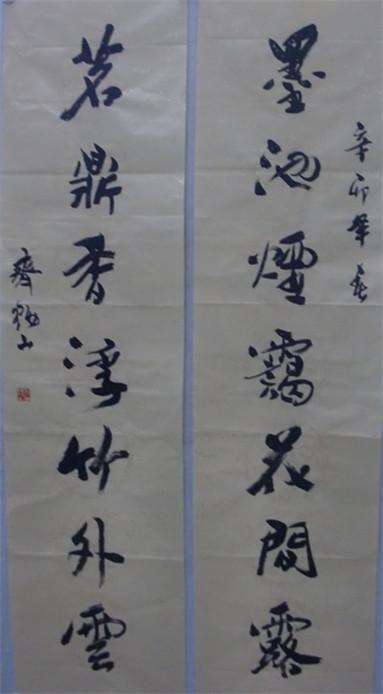 辛卯年春
墨池煙靄花間露
茗鼎香浮竹外雲
齊山